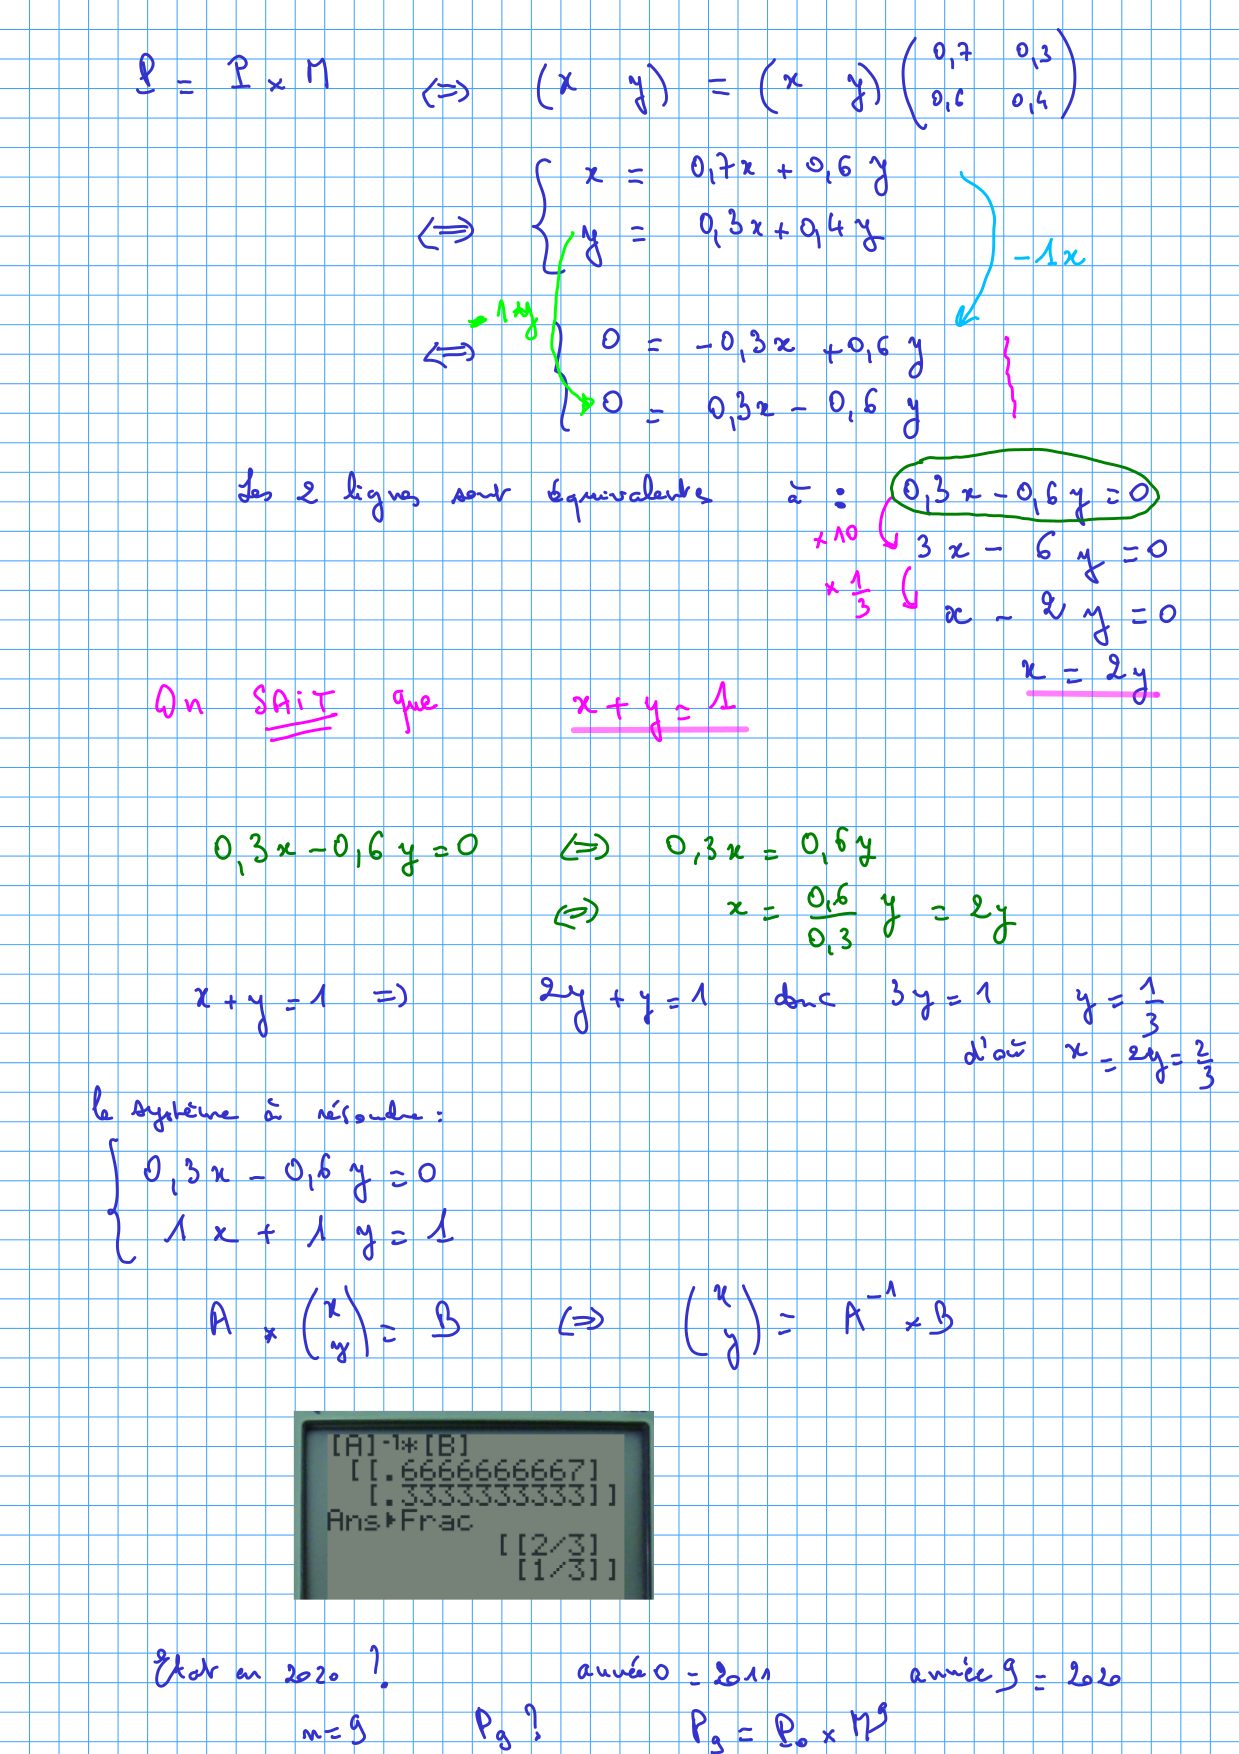 P = P × M ⇔ (x y) = (x y) (0,7 0,3
0,6 0,4)
x = 0,7x + 0,6 y
⇔ y = 0,3x + 0,4 y
-1x
-1y
⇔ 0 = -0,3x + 0,6 y
0 = 0,3x - 0,6 y
Les 2 lignes sont équivalentes à : 0,3x - 0,6y = 0
×10 3x - 6y = 0
× 1/3 x - 2y = 0
x = 2y
On SAIT que x + y = 1
0,3x - 0,6y = 0 ⇔ 0,3x = 0,6y
⇔ x = 0,6/0,3 y = 2y
x + y = 1 => 2y + y = 1 donc 3y = 1 y = 1/3
d'où x = 2y = 2/3
le système à résoudre :
0,3x - 0,6y = 0
1x + 1y = 1
A × (x y) = B ⇔ (x y) = A⁻¹ × B
[A]⁻¹*[B]
[[.6666666667]
[.3333333333]]
Ans▸Frac
[[2/3]
[1/3]]
Etat en 2020 ? année 0 = 2011 année 9 = 2020
n=9 P₉ ? P₉ = P₀ × M⁹